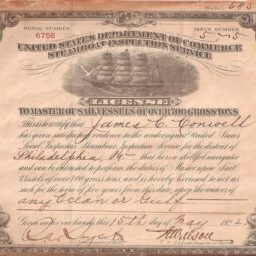 SERIAL NUMBER
6756
ISSUE NUMBER
5-5
UNITED STATES DEPARTMENT OF COMMERCE
STEAMBOAT INSPECTION SERVICE
LICENSE
TO MASTER OF SAIL VESSELS OF OVER 700 GROSS TONS.
This is to certify that James E Conwell
has given satisfactory evidence to the undersigned United States
Local Inspectors, Steamboat Inspection Service, for the district of
Philadelphia, Pa. that he is a skillful navigator
and can be trusted to perform the duties of Master upon Sail
Vessels of over 700 gross tons, and is hereby licensed to act as
such for the term of five years from this date, upon the waters of
any Ocean or Gulf
Given under our hands this 15th day of